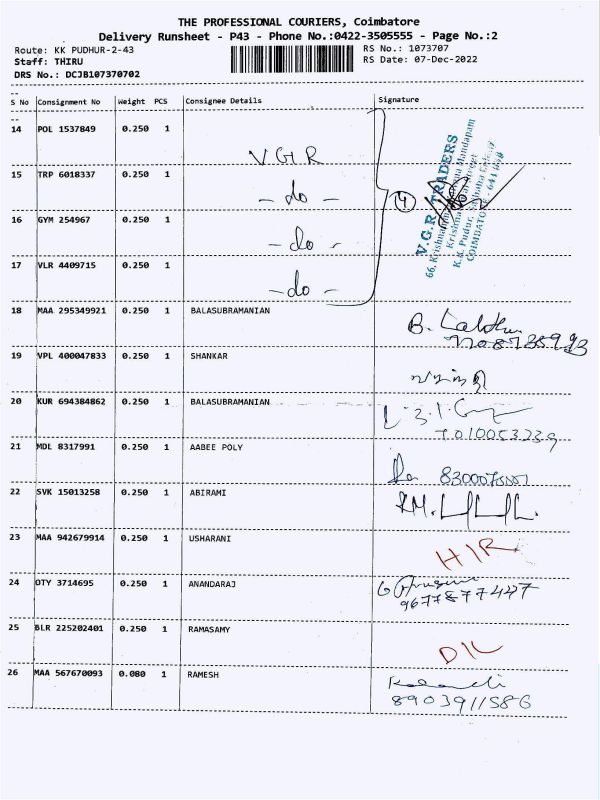 THE PROFESSIONAL COURIERS, Coimbatore
Delivery Runsheet - P43 - Phone No.:0422-3505555 - Page No.:2
Route: KK PUDHUR-2-43 RS No.: 1073707
Staff: THIRU RS Date: 07-Dec-2022
DRS No.: DCJB107370702
S No Consignment No Weight PCS Consignee Details Signature
14 POL 1537849 0.250 1 VGR
15 TRP 6018337 0.250 1 - do -
16 GYM 254967 0.250 1 - do -
17 VLR 4409715 0.250 1 - do -
4
V.G.R. TRADERS
COIMBATORE
18 MAA 295349921 0.250 1 BALASUBRAMANIAN
19 VPL 400047833 0.250 1 SHANKAR
20 KUR 694384862 0.250 1 BALASUBRAMANIAN
21 MDL 8317991 0.250 1 AABEE POLY
22 SVK 15013258 0.250 1 ABIRAMI
23 MAA 942679914 0.250 1 USHARANI
24 OTY 3714695 0.250 1 ANANDARAJ
9677877447
25 BLR 225202401 0.250 1 RAMASAMY
26 MAA 567670093 0.080 1 RAMESH
8903911586